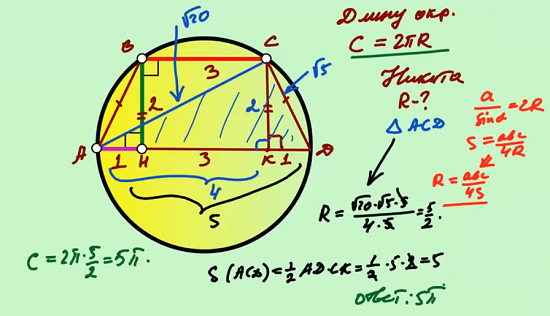 Длину окр.
C = 2πR
Никита
R-?
△ ACD
a/sinα = 2R
S = abc/4R
R = abc/4S
√20
√5
B
C
3
2
2
A
1
H
3
K
1
D
4
5
R = √20·√5·5/4·5 = 5/2.
C = 2π·5/2 = 5π.
S (ACD) = 1/2 AD·CK = 1/2·5·2 = 5
Ответ: 5π